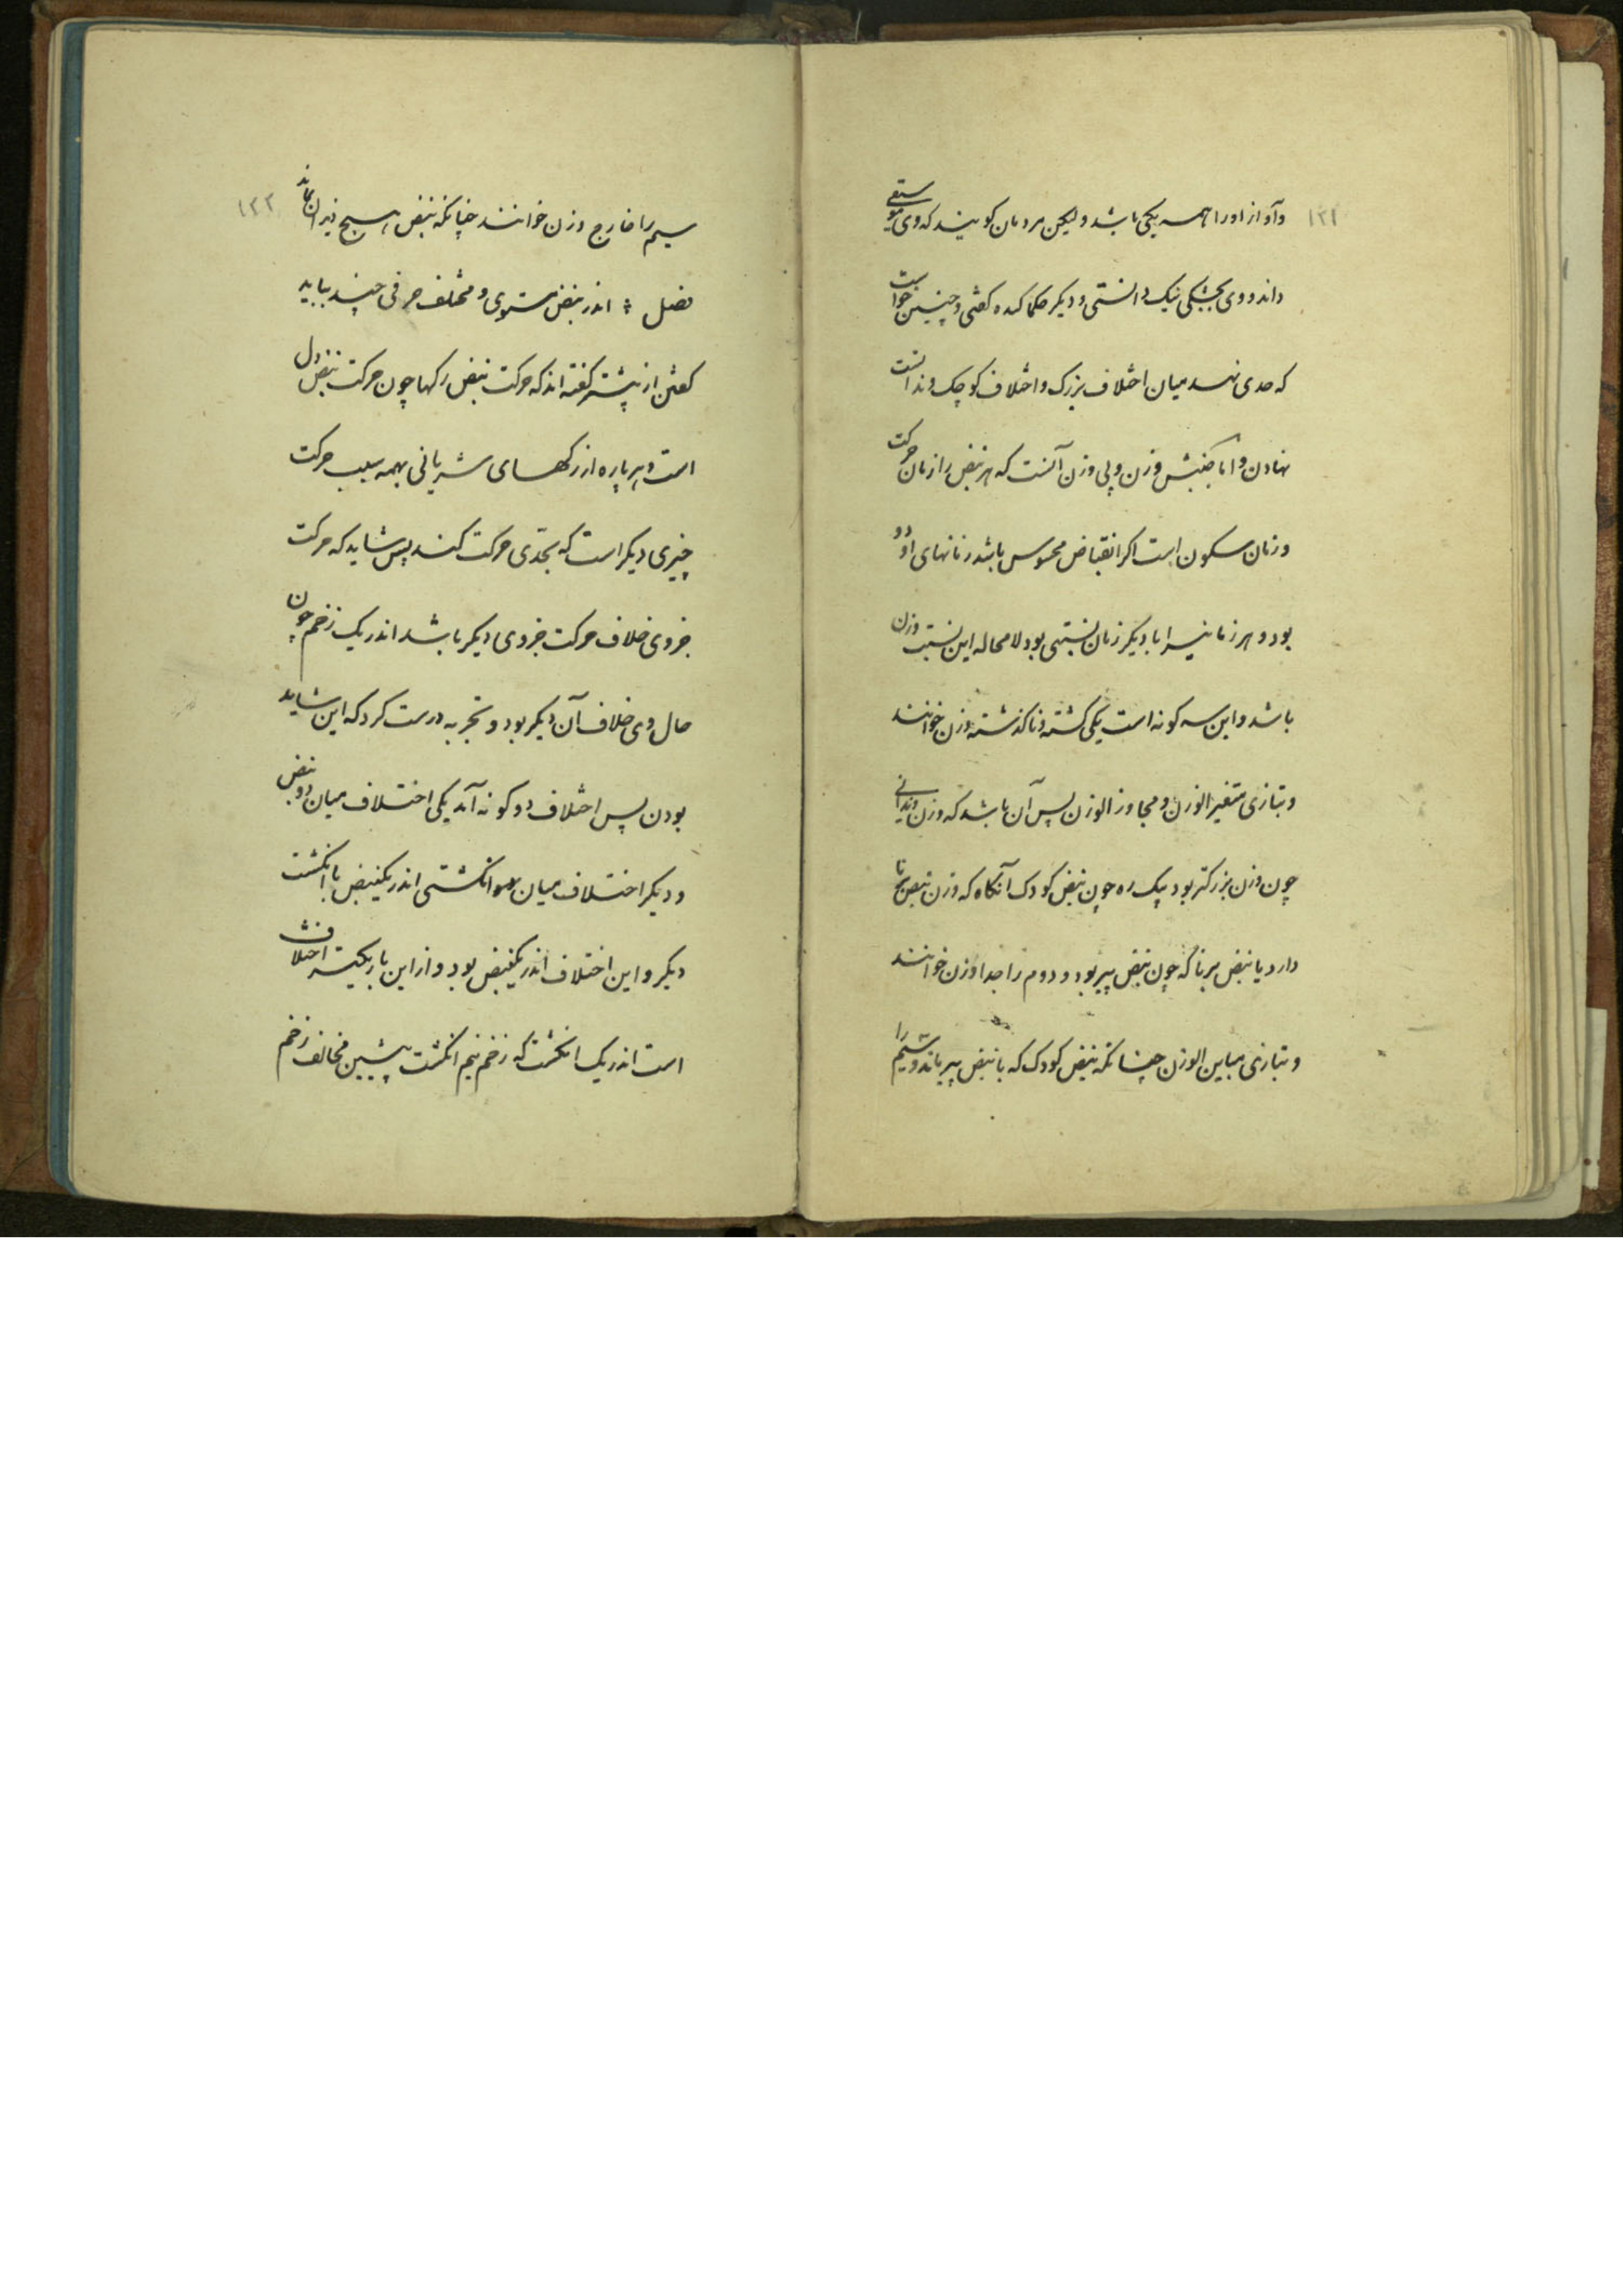 ۱۲۱
وآواز اورا همه یکی باشد ولیکن مردمان کویند که وی موسیقی
داند ووی بجشکی نیک دانستی ودیکر حکما کفتی وچنین خواست
که حدی نهد میان اختلاف بزرک واختلاف کوچک وندانست
نهادن واما جنبش وزن وبی وزن آنست که هر نبض را زمان حرکت
وزمان سکون است اکر انقباض محسوس باشد زمانهای او دو
بود وهر زمانیرا با دیکر زمان نسبتی بود لامحاله این نسبت وزن
باشد واین سه کونه است یکی کشته وناکذشته وزن خوانند
وبتازی متغیر الوزن ومجاوز الوزن پس آن باشد که وزن دندانی
چون وزن بزرکتر بود بیک ره چون نبض کودک آنکاه که وزن نبض برنا
دارد یا نبض برنا که چون نبض پیر بود ودوم را جدا وزن خوانند
وبتازی مباین الوزن چنانکه نبض کودک که با نبض پیر ماند وسیم را
۱۲۲
سیم را خارج وزن خوانند چنانکه نبض هیچ نبض را نماند
فصل : اندر نبض مستوی ومختلف حرفی چند بباید
کفتن از پیشتر کفته اند که حرکت نبض رکها چون حرکت نبض دل
است وهر پاره از رکهای شریانی بهمه سبب حرکت
چیزی دیکر است که بتحدی حرکت کنند پس شاید که حرکت
جزوی خلاف حرکت جزوی دیکر باشد اندر یک زخم چون
حال وی خلاف آن دیکر بود وتجربه درست کرد که این شاید
بودن پس اختلاف دو کونه آمد یکی اختلاف میان دو نبض
ودیکر اختلاف میان انکشتی اندر یکنبض با انکشت
دیکر واین اختلاف اندر یکنبض بود واز این باریکتر اختلافش
است اندر یک انکشت که زخم نیم انکشت پیشین مخالف زخم